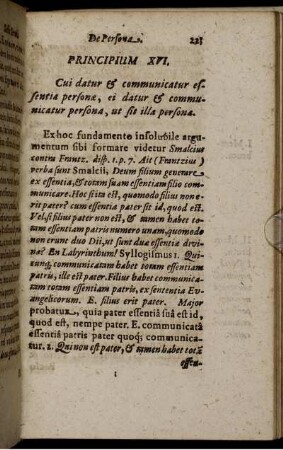 De Persona. 225
PRINCIPIUM XVI.
Cui datur & communicatur es-
sentia personæ, ei datur & commu-
nicatur persona, ut sit illa persona.
Ex hoc fundamento insolubile argu-
mentum sibi formare videtur Smalcius
contra Frantz. disp. 1. p. 7. Ait (Frantzius)
verba sunt Smalcii, Deum filium generare
ex essentia, & totam suam essentiam filio com-
municare. Hoc si ita est, quomodo filius non e-
rit pater? cum essentia pater sit id, quod est.
Vel, si filius pater non est, & tamen habet to-
tam essentiam patris numero unam, quomodo
non erunt duo Dii, ut sunt duæ essentiæ divi-
næ? En Labyrinthum! Syllogismus 1. Qui-
cunq; communicatam habet totam essentiam
patris, ille est pater. Filius habet communica-
tam totam essentiam patris, ex sententia Ev-
angelicorum. E. filius erit pater. Major
probatur, quia pater essentiâ suâ est id,
quod est, nempe pater. E. communicatâ
essentiâ patris pater quoq; communica-
tur. 2. Qui non est pater, & tamen habet totã
essen-